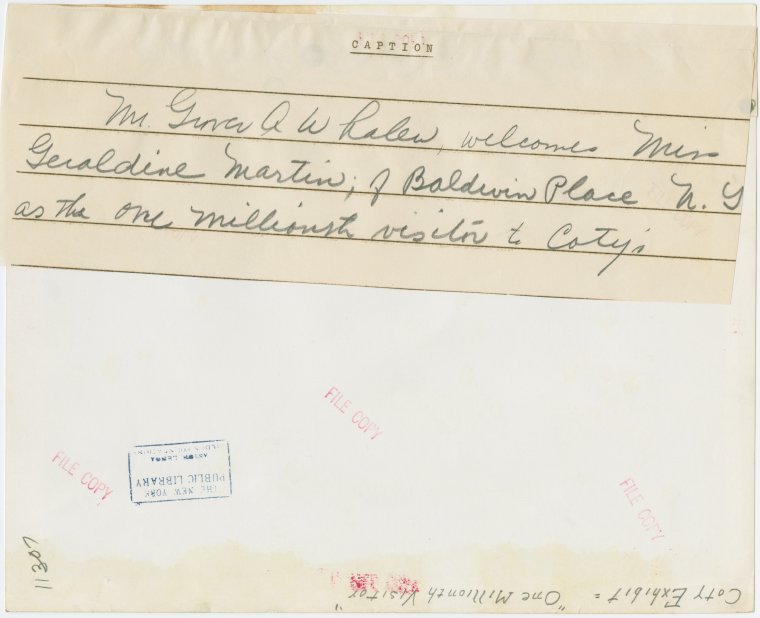 CAPTION
Mr. Grover A Whalen, welcomes Miss
Geraldine Martin; of Baldwin Place N. Y
as the one millionth visitor to Coty's
FILE COPY
FILE COPY
THE NEW YORK
PUBLIC LIBRARY
ASTOR LENOX
FILE COPY
11307
Coty Exhibit = "One Millionth Visitor"